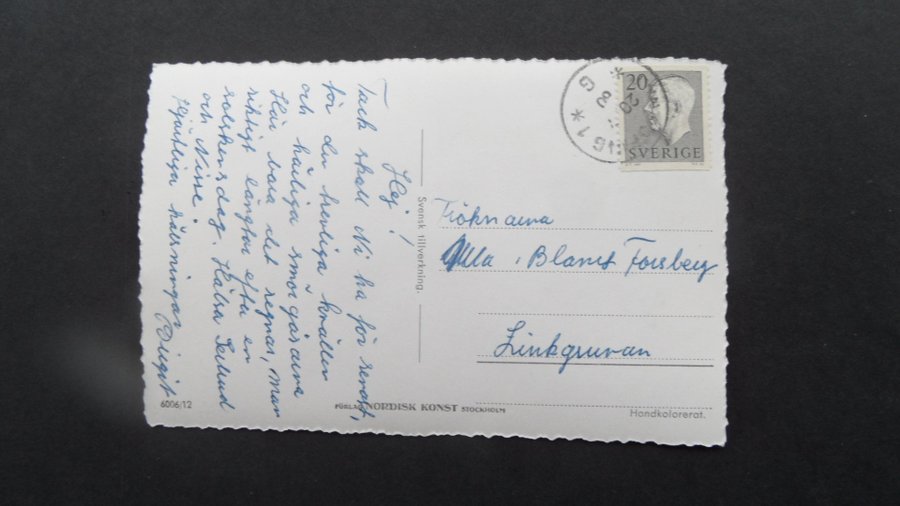 Hej!
Tack skall Ni ha för senast,
för den trevliga kvällen
och härliga smörgåsarna
Här bara det regnar, man
riktigt längtar efter en
solskensdag. Hälsa
och Nisse.
Hjärtliga hälsningar Birgit
Svensk tillverkning.
20
SVERIGE
Fröknarna
Ulla, Blanes Forsberg
Zinkgruvan
6006/12
FÖRLAG NORDISK KONST STOCKHOLM
Handkolorerat.